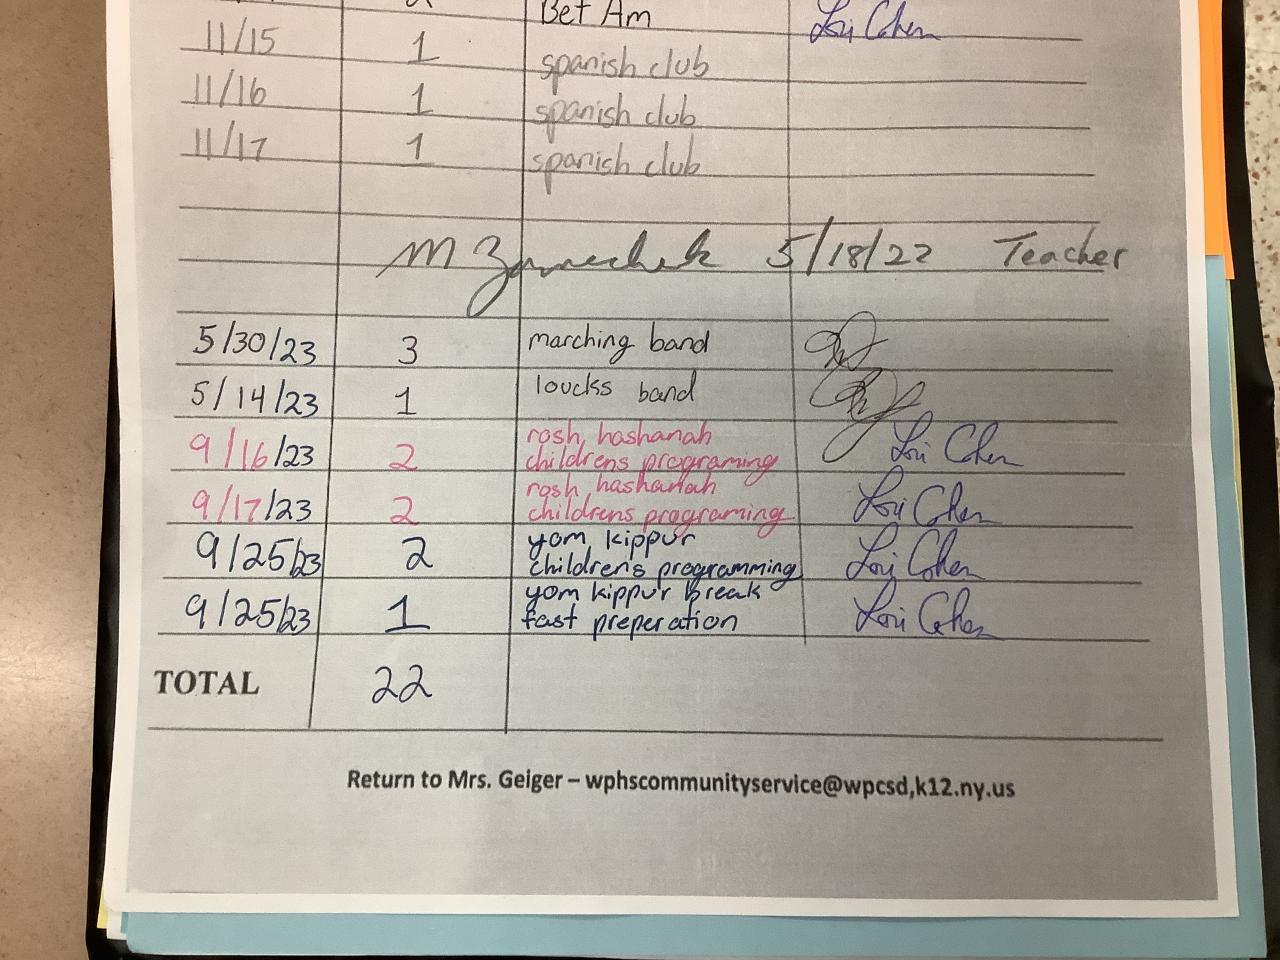 Bet Am Lori Cohen
11/15 1 spanish club
11/16 1 spanish club
11/17 1 spanish club
M 5/18/22 Teacher
5/30/23 3 marching band
5/14/23 1 loucks band
9/16/23 2 rosh hashanah
childrens programing Lori Cohen
9/17/23 2 rosh hashanah
childrens programing Lori Cohen
9/25/23 2 yom kippur
childrens programming Lori Cohen
9/25/23 1 yom kippur break
fast preperation Lori Cohen
TOTAL 22
Return to Mrs. Geiger – wphscommunityservice@wpcsd,k12.ny.us